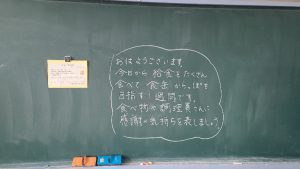 おはようございます
今日から給食をたくさん
食べて食缶からっぽを
目指す1週間です。
食べ物や調理員さんに
感謝の気持ちを表しましょう